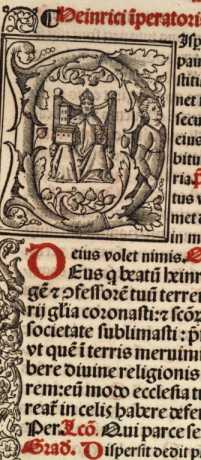 Heinrici īperatori
Disp
pau
stiti
net i
secu
eius
bitu
ria. P
tus v
met d
in m
eius volet nimis. O
Deus q beatū heinr
gē ⁊ ꝯfessorē tuū terre
rij glia coronasti: ⁊ scōr
societate sublimasti: p̄
vt quē ī terris meruim
bere diuine religionis
rem: eū modo ecclesia tu
reat̄ in celis habere defen
Per. Lcō. Qui parce se
Grad. Dispersit dedit p